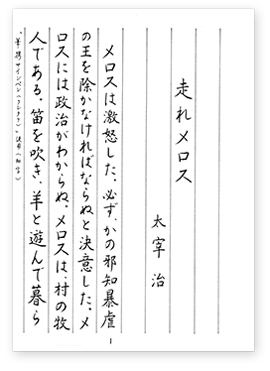 走れメロス
太宰 治
メロスは激怒した。必ず、かの邪知暴虐
の王を除かなければならぬと決意した。メ
ロスには政治がわからぬ。メロスは、村の牧
人である。笛を吹き、羊と遊んで暮ら
1